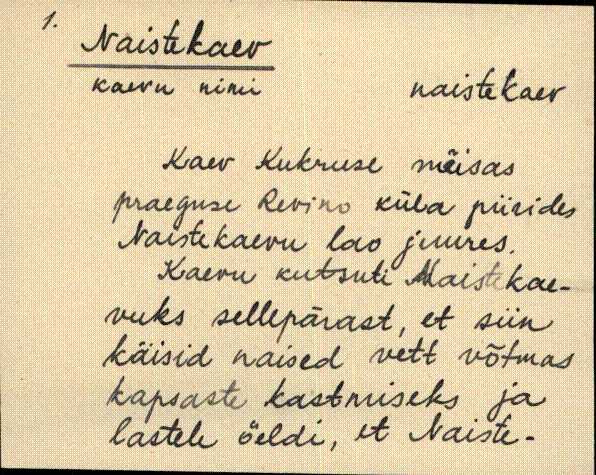 1.
Naistekaev
kaevu nimi naistekaev
Kaev Kukruse mõisas
praeguse Revino küla piirides
Naistekaevu lao juures.
Kaevu kutsuti Naistekae-
vuks sellepärast, et siin
käisid naised vett võtmas
kapsaste kastmiseks ja
lastele öeldi, et Naiste-